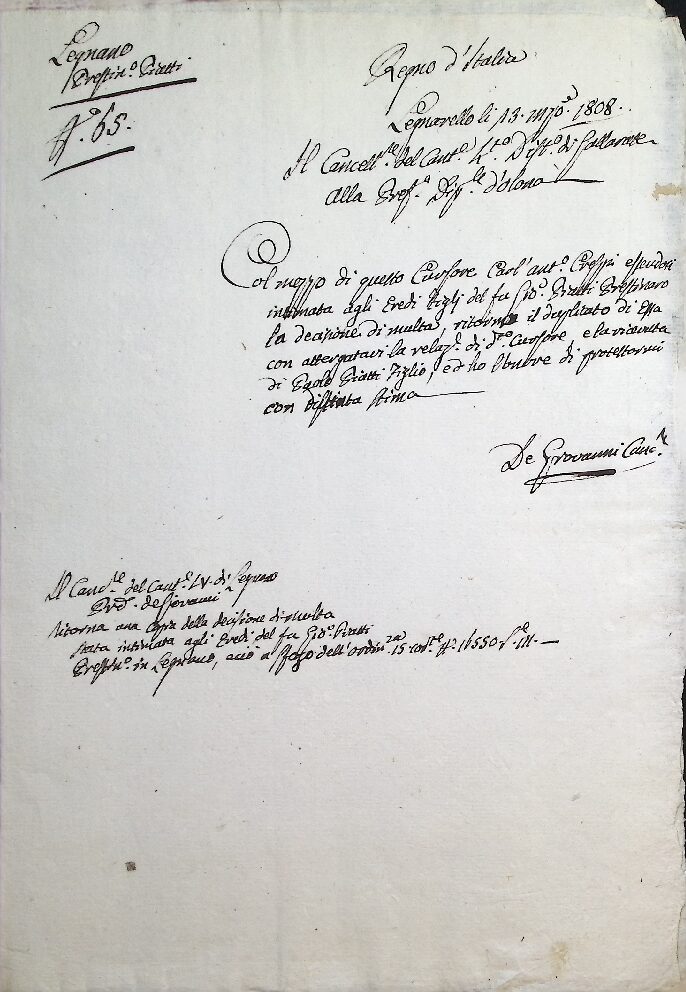 Legnano
Prestin.o Piatti
N.o 65.
Regno d'Italia
Legnarello li 13. mag.o 1808.
Il Cancell.re del Cant.o 4.to Dist.o di Gallarate
Alla Pref.a Dip.le d'Olona
Col mezzo di questo Cursore Carl'ant.o Crespi essendosi
intimata agli Eredi Figli del fu Gio. Piatti Prestinaro
la decisione di multa, ritorno il duplicato di Essa
con attergatavi la relaz.e di d.o Cursore, e la ricevuta
di Piatti Figlio, ed ho l'onore di protestarmi
con distinta stima
De Giovanni Canc.e
Il Canc.re del Cant.e IV. di Legnano
De Giovanni
Ritorna una Copia della decisione di multa
stata intimata agli Eredi del fu Gio. Piatti
Prestin.o in Legnano, ciò a sfogo dell'ordin.za 15 N.o 16550